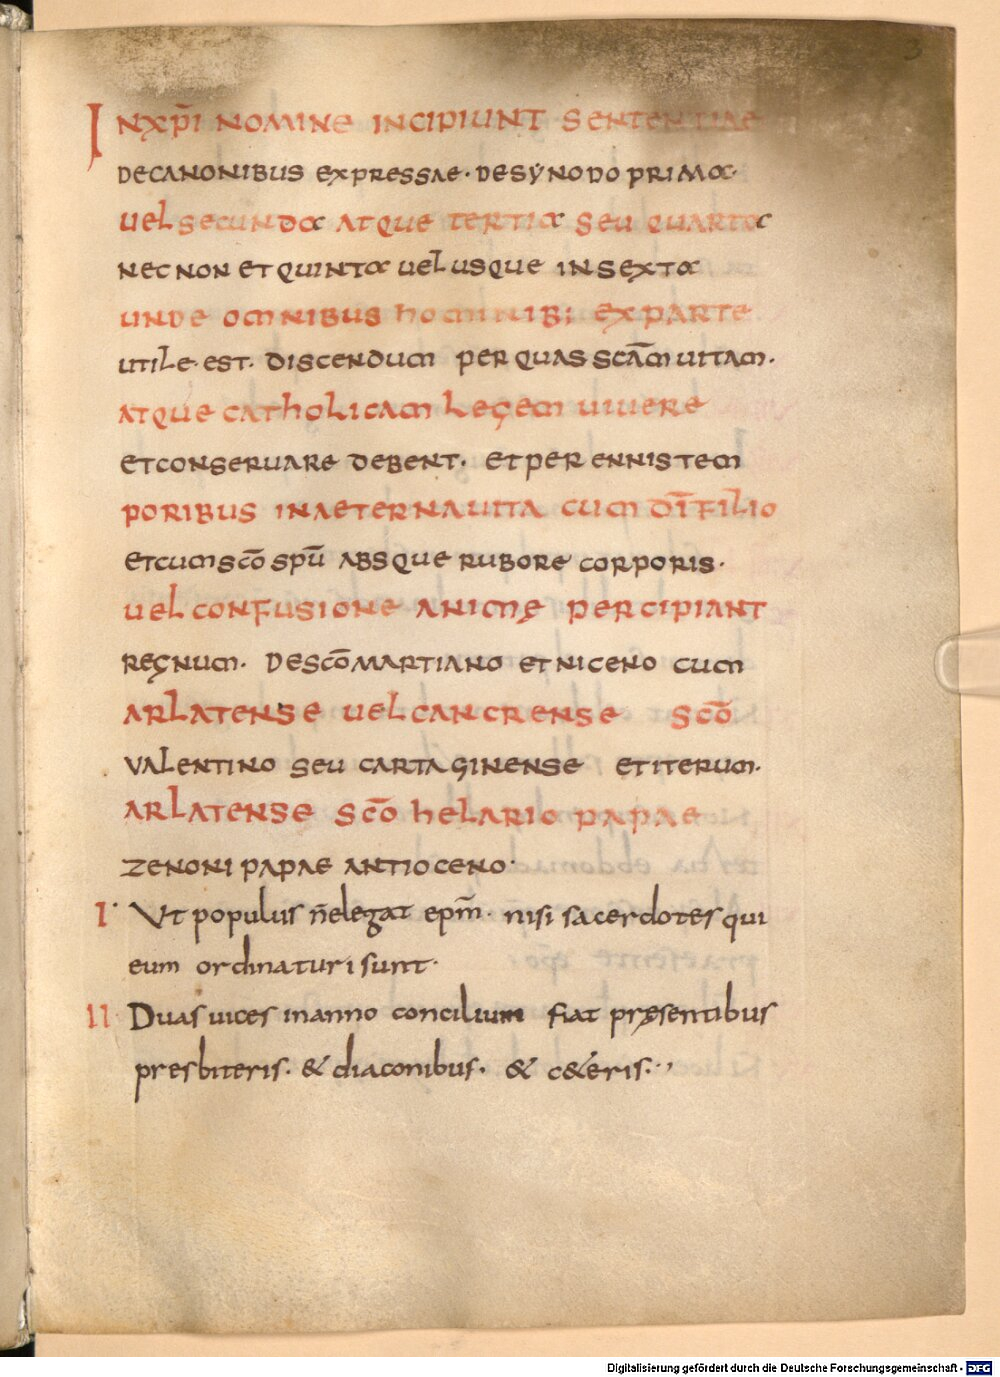 3
IN XP̄I NOMINE INCIPIUNT SENTENTIAE
DECANONIBUS EXPRESSAE· DESYNODO PRIMA·
UEL SECUNDA ATQUE TERTIA SEU QUARTA
NECNON ET QUINTA UEL USQUE IN SEXTA
UNDE OMNIBUS HOMINIB; EXPARTE
UTILE· EST· DISCENDUM PER QUAS SCĀM UITAM·
ATQUE CATHOLICAM LEGEM UIUERE
ETCONSERUARE DEBENT· ET PER ENNISTEM
PORIBUS INAETERNA UITA CUM DĪ FILIO
ETCUM SCŌ SPŪ ABSQUE RUBORE CORPORIS·
UEL CONFUSIONE ANIMĘ PERCIPIANT
REGNUM· DESCŌ MARTIANO ET NICENO CUM
ARLATENSE UEL CANCRENSE SCŌ
VALENTINO SEU CARTAGINENSE ET ITERUM·
ARLATENSE SCŌ HELARIO PAPAE
ZENONI PAPAE ANTIOCENO·
I· Ut populus n̄ elegat epm̄· nisi sacerdotes qui
eum ordinaturi sunt·
II Duas uices inanno concilium fiat pręsentibus
presbiteris· & diaconibus· & c&eris·,
Digitalisierung gefördert durch die Deutsche Forschungsgemeinschaft - DFG